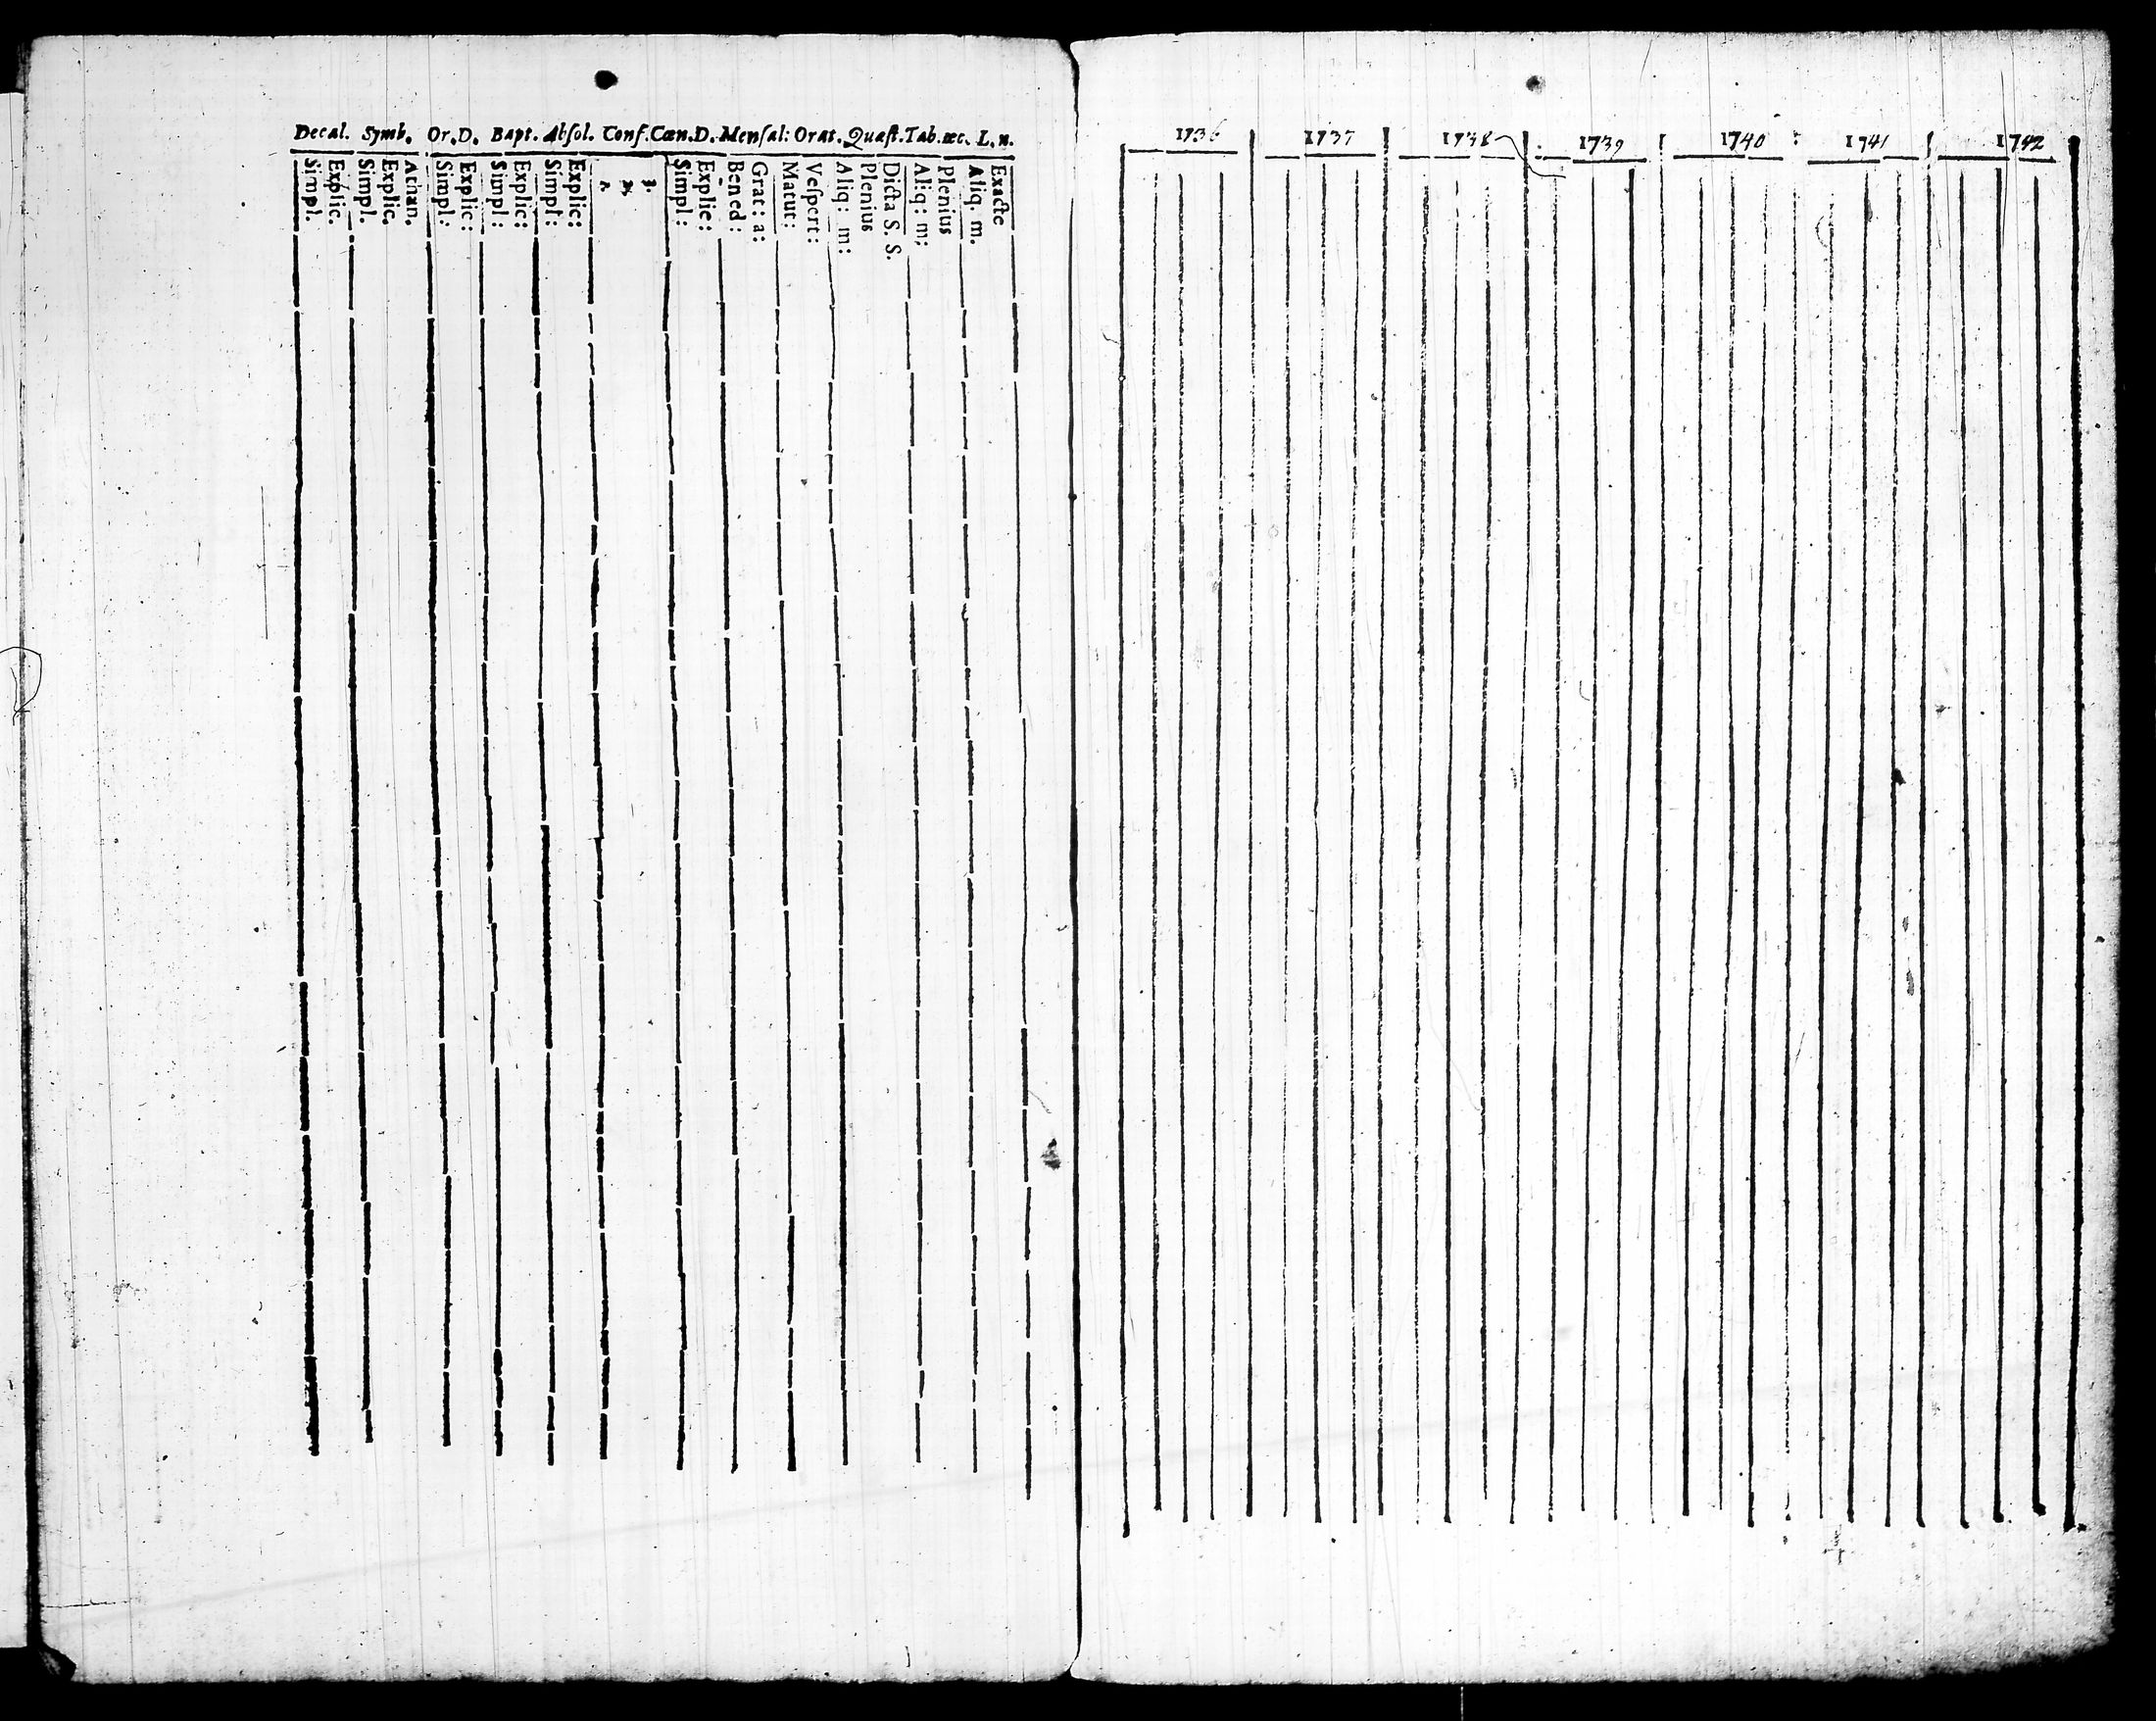 Decal. Symb. Or.D. Bapt. Abſol. Conf. Cœn.D. Menſal: Orat. Quæſt. Tab. œc. L.n.
Simpl.
Explic.
Simpl.
Explic.
Athan.
Simpl:
Explic:
Simpl:
Explic:
Simpl:
Explic:
1.
2.
3.
Simpl:
Explic:
Bened:
Grat: a:
Matut:
Veſpert:
Aliq: m:
Plenius
Dicta S. S.
Aliq: m:
Plenius
Aliq. m.
Exacte
1736 1737 1738 1739 1740 1741 1742